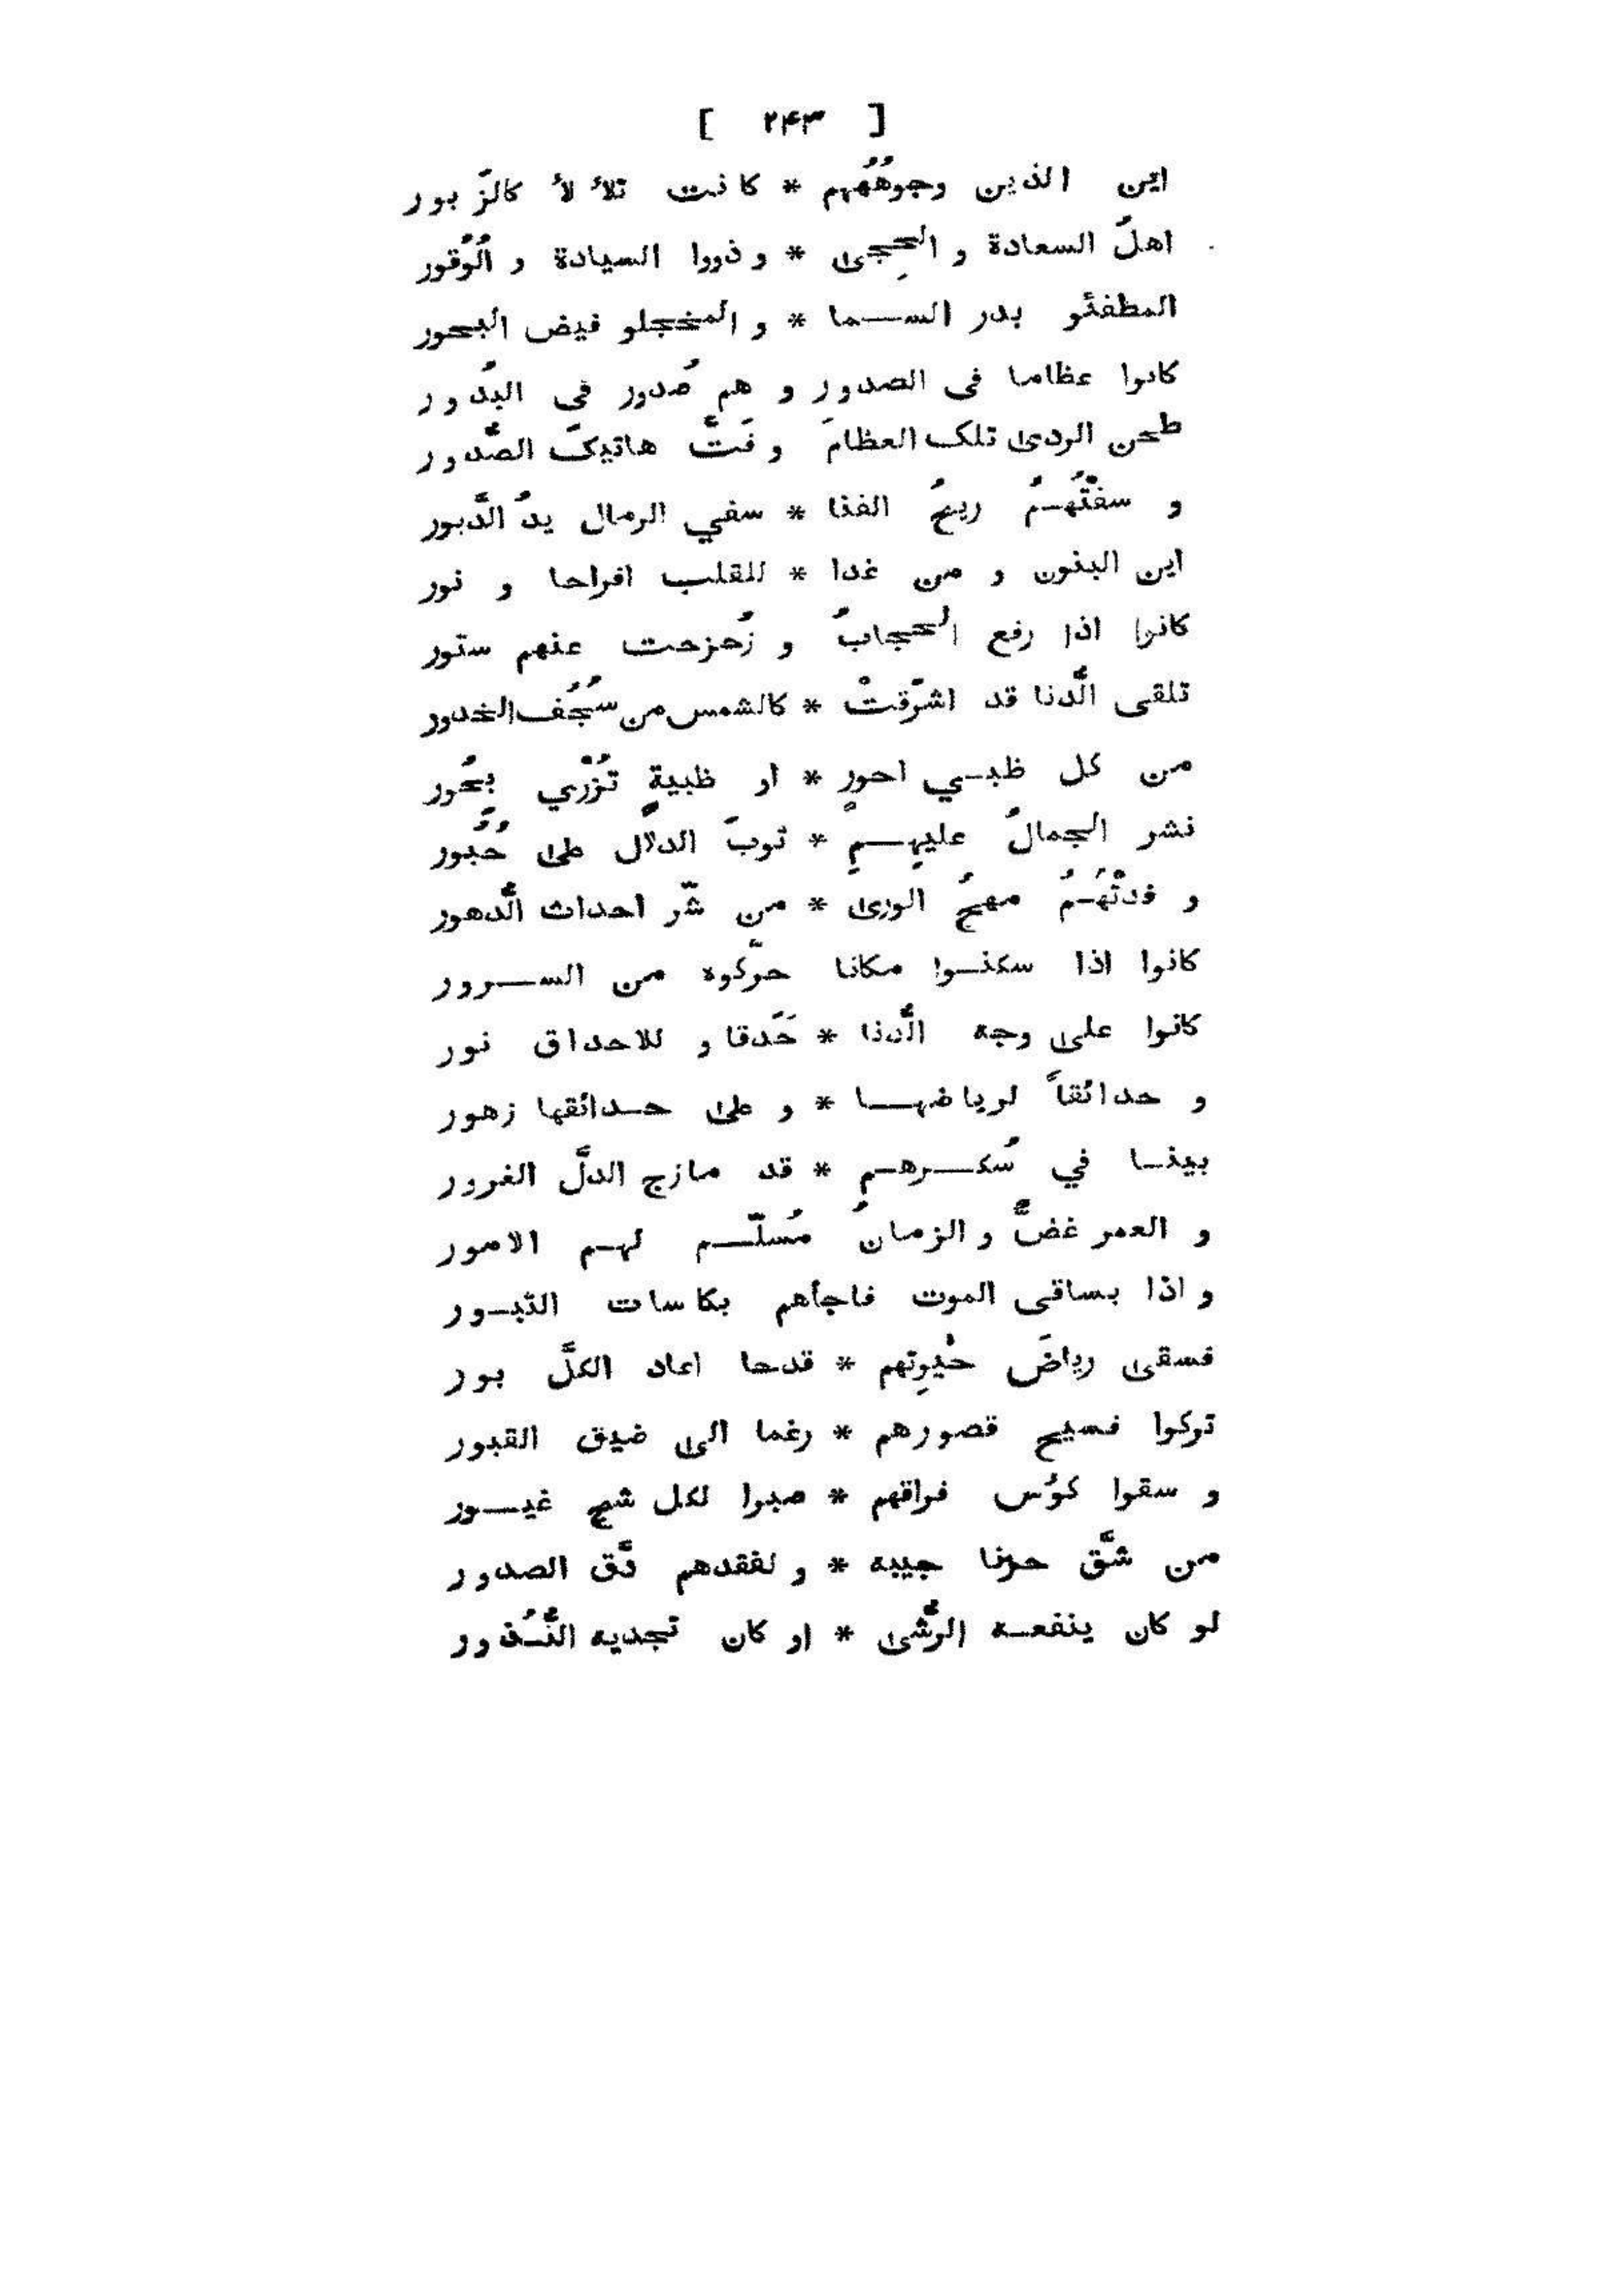 [ ۲۴۳ ]
اين الذين وجوهُهُم * كانت تلأ لأ كالزّبور
اهلُ السعادة و الحِجى * و ذووا السيادة و الُوُقور
المطفئو بدر السـما * و المخجلو فيض البحور
كانوا عظاما فى الصدور و هم صُدور في البُدور
طحن الردى تلك العظامَ و فَتَّ هاتيكَ الصُّدور
و سفتْهُـمُ ريحُ الفنا * سفي الرمال يدُ الدَّبور
اين البنون و من غدا * للقلب افراحا و نور
كانوا اذا رفع الحجابُ و زُحزحت عنهم ستور
تلقى الُّدنا قد اشرّقتْ * كالشمس من سُجُف الخدور
من كل ظبـي احورٍ * او ظبيةٍ تُزْري بحُور
نشر الجمالُ عليهِـمِ * ثوبَ الدلال على حُبُور
و فدتْهُـمُ مهجُ الورى * من شّر احداث الُّدهور
كانوا اذا سكنـوا مكانا حرّكوه من السـرور
كانوا على وجه الُّدنا * حَدَقا و للاحداق نور
و حدائقاً لرياضهـا * و على حـدائقها زهور
بينـا في سُكـرهـم * قد مازج الدلَّ الغرور
و العمر غضٌّ و الزمانُ مُسلّـم لهـم الامور
و اذا بساقى الموت فاجأهم بكاسات الثبـور
فسقى رياضَ حْيوِتهم * قدحا اعاد الكلَّ بور
تركوا فسيح قصورهم * رغما الى ضيق القبور
و سقوا كوُس فراقهم * صبرا لكل شج غيـور
من شَّق حزنا جيبه * و لفقدهم دَّق الصدور
لو كان ينفعـه الرُّشى * او كان تجديه النُّـذور